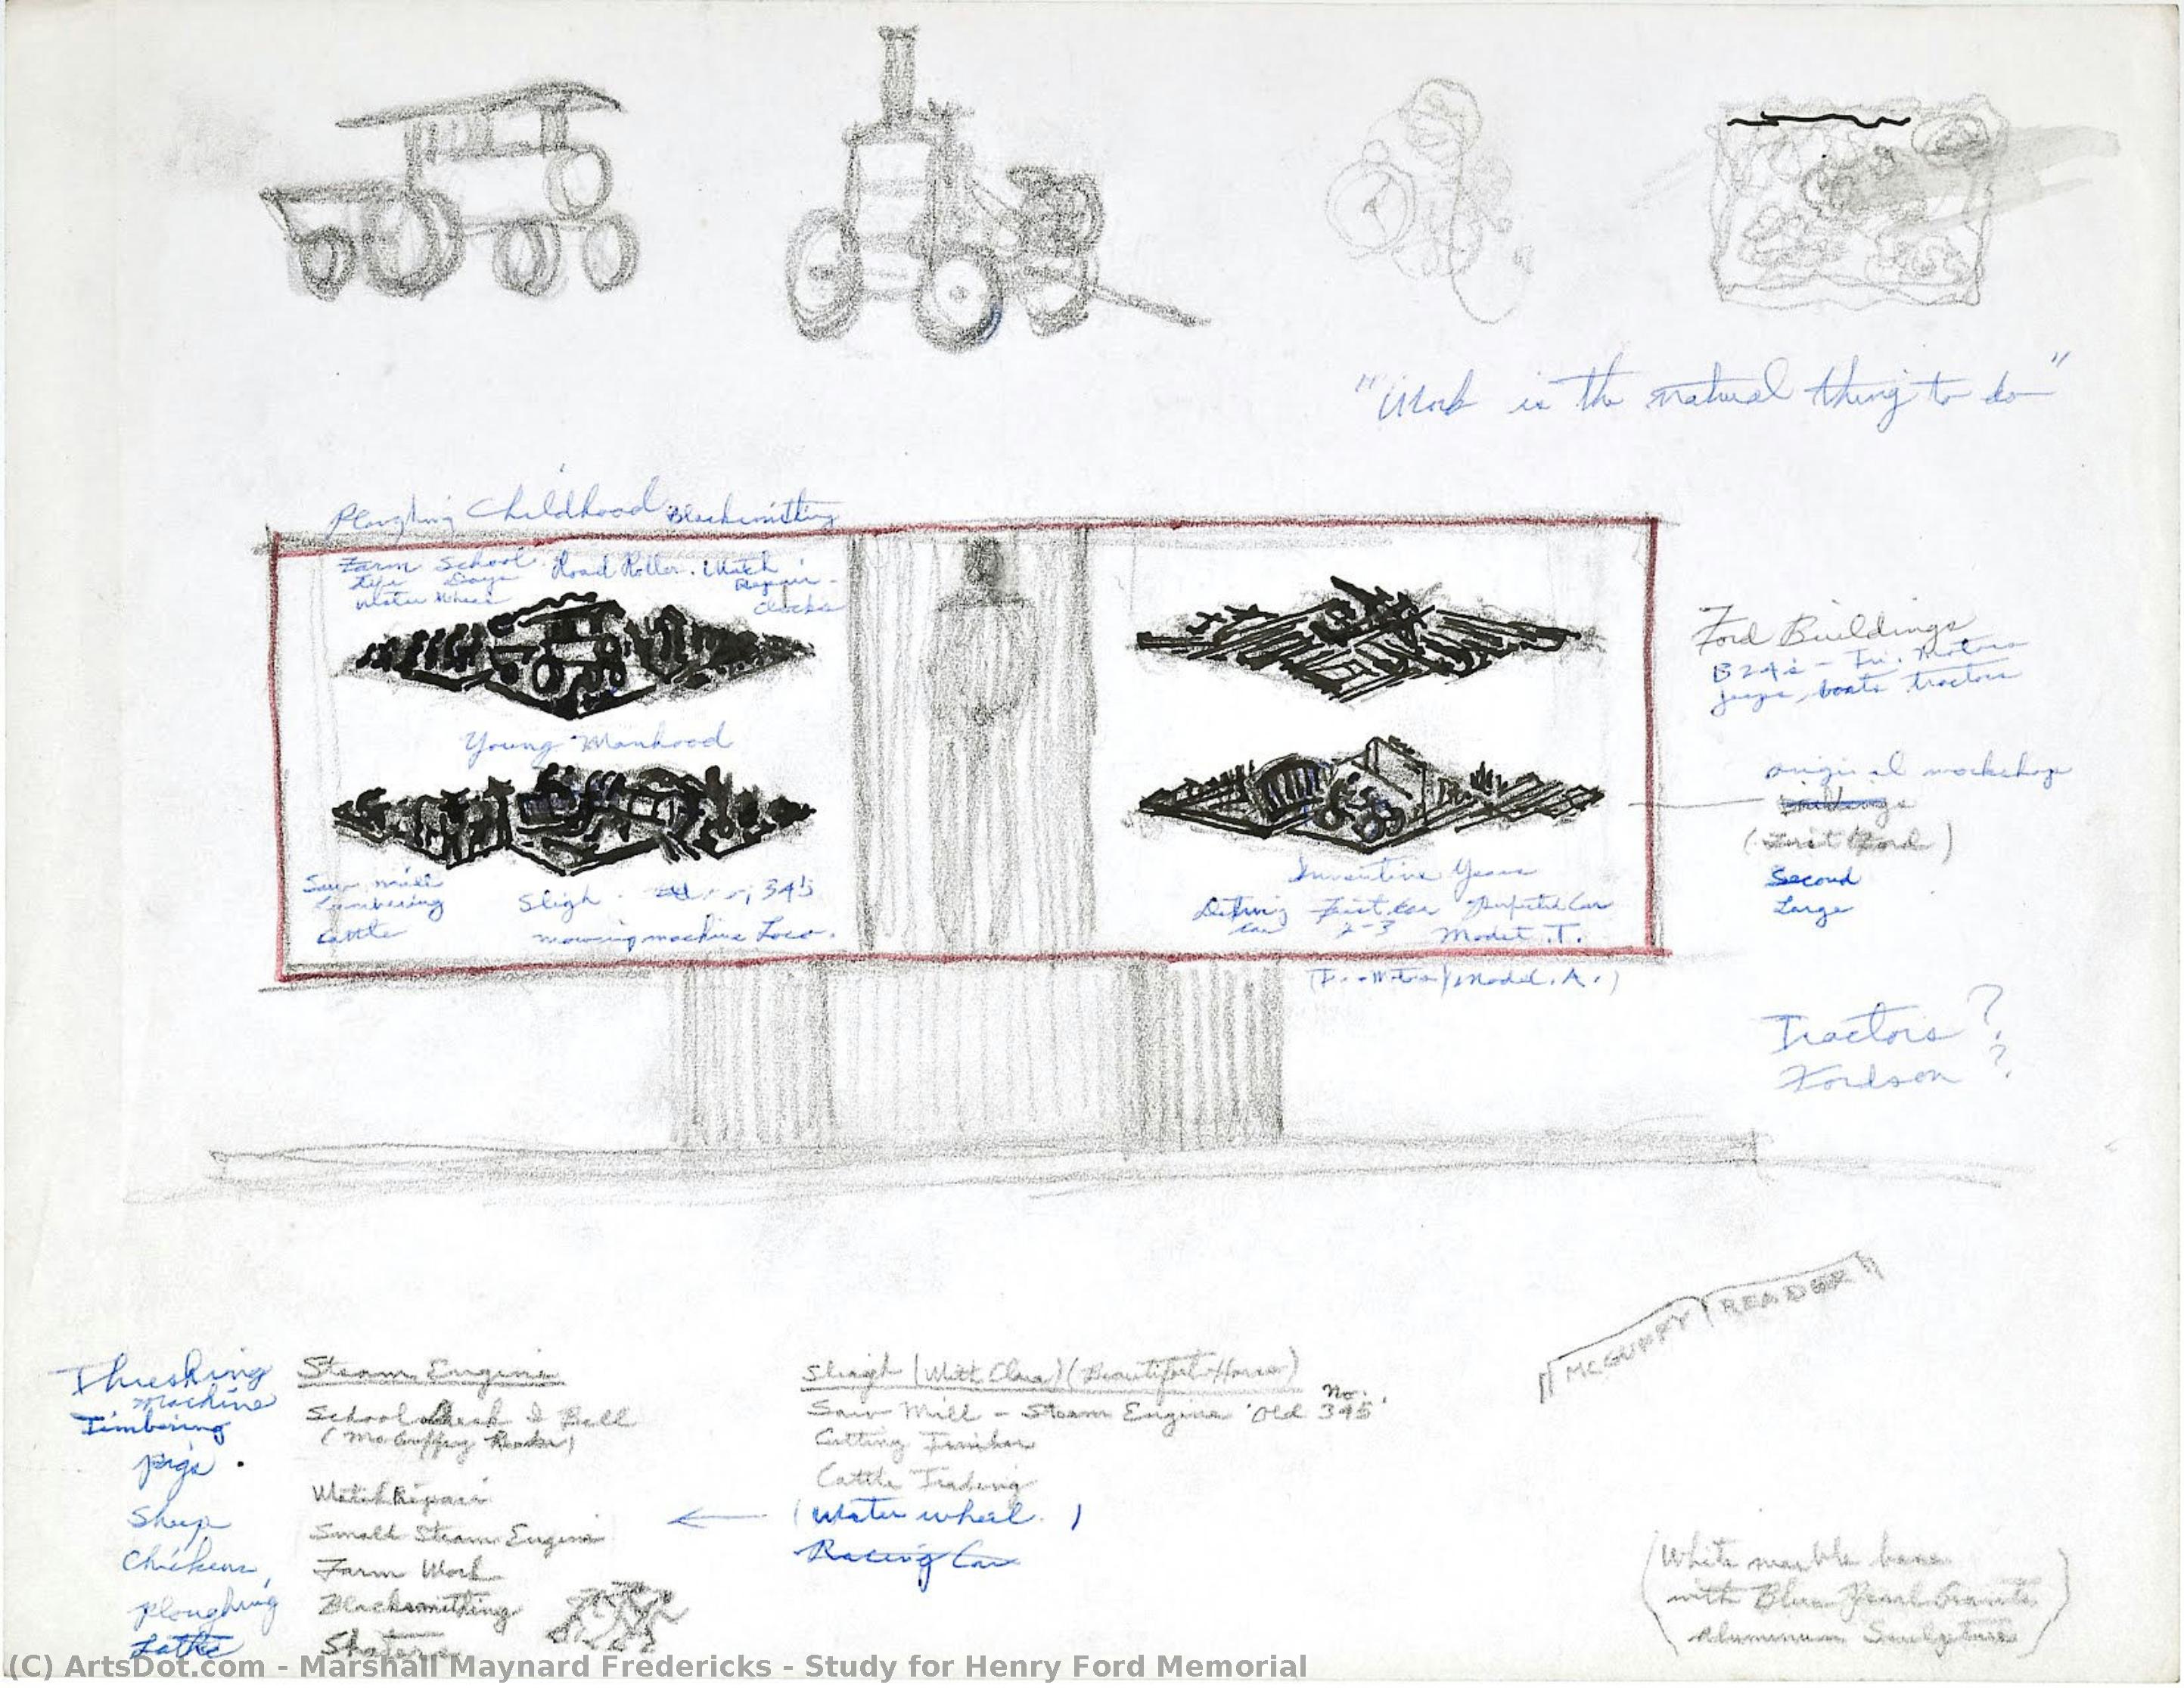 "Work is the natural thing to do"
Ploughing Childhood Blacksmithing
Farm School Road Roller. Watch
Life Days Repair -
Water Wheel Clocks
Young Manhood
Ford Buildings
B24's - Tri. Motors
jeeps, boats tractors
original workshop
buildings
(First Ford)
Second
Large
Saw mill
Lumbering
Cattle
Sleigh . 345
mowing machine Loco.
Inventive Years
First Car Perfected Car
Car 2-3 Model . T.
(Tri-Motor) Model . A.)
Tractors ?
Fordson ?
MCGUFFY READER
Threshing
Machine
Timbering
pigs
Sheep
Chickens,
ploughing
Lathe
Steam Engine
School Desk & Bell
(McGuffey Reader)
Watch Repair
Small Steam Engine
Farm Work
Blacksmithing
Skaters
Sleigh (With Clara) (Beautiful Horse)
Saw Mill - Steam Engine 'Old No. 345'
Cutting Timber
Cattle Trading
(Water wheel.)
Racing Car
(White marble base
with Blue Pearl Granite
Aluminum Sculpture)
(C) ArtsDot.com - Marshall Maynard Fredericks - Study for Henry Ford Memorial